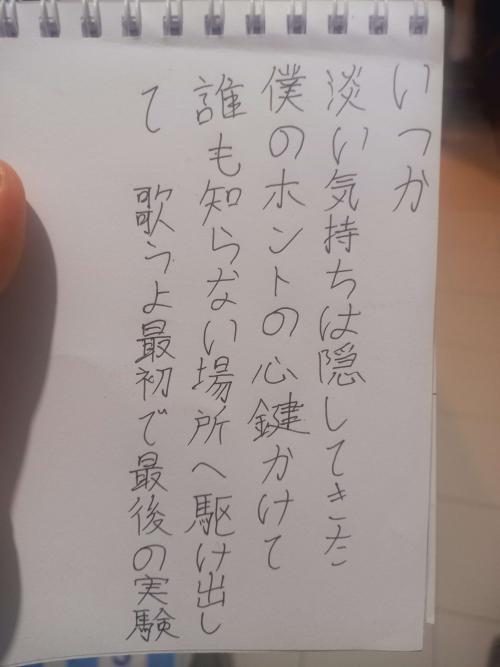 いつか
淡い気持ちは隠してきた
僕のホントの心鍵かけて
誰も知らない場所へ駆け出し
て　歌うよ最初で最後の実験